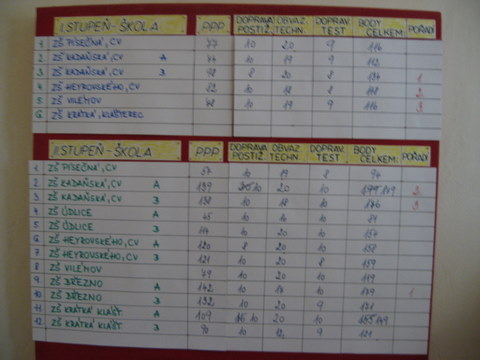 I. STUPEŇ - ŠKOLA PPP DOPRAVA POSTIŽ. OBVAZ. TECHN. DOPRAV. TEST BODY CELKEM POŘADÍ
1 ZŠ PÍSEČNÁ, CV 77 10 20 9 116
2 ZŠ KADAŇSKÁ, CV A 74 10 19 9 112
3 ZŠ KADAŇSKÁ, CV B 98 8 20 8 134 1
4 ZŠ HEYROVSKÉHO, CV 82 10 18 8 118 2
5 ZŠ VILÉMOV 78 10 19 9 116 3
6 ZŠ KRÁTKÁ, KLÁŠTEREC
II. STUPEŇ - ŠKOLA PPP DOPRAVA POSTIŽ. OBVAZ. TECHN. DOPRAV. TEST BODY CELKEM POŘADÍ
1 ZŠ PÍSEČNÁ, CV 57 10 19 8 94
2. ZŠ KADAŇSKÁ, CV A 139 10 20 10 179 2
3 ZŠ KADAŇSKÁ, CV B 138 10 18 10 176 3
4 ZŠ ÚDLICE A 45 10 10
5 ZŠ ÚDLICE B 114 10 20 10 154
6 ZŠ HEYROVSKÉHO, CV A 120 8 20 10 158
7 ZŠ HEYROVSKÉHO, CV B 121 10 20 8 159
8 ZŠ VILÉMOV 79 10 20 10 119
9 ZŠ BŘEZNO A 142 10 10 179 1
10 ZŠ BŘEZNO B 132 10 20 9 171
11 ZŠ KRÁTKÁ KLÁŠT. A 109 10 20 10 149
12. ZŠ KRÁTKÁ KLÁŠT B 90 10 12 9 121